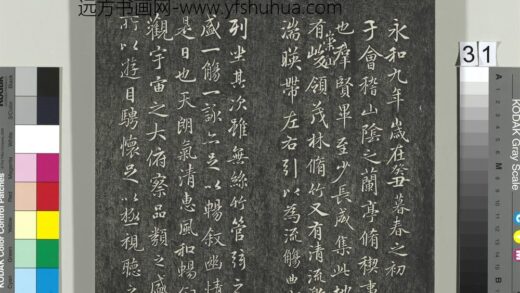 远方书画网- www.yfshuhua.com
永和九年歲在癸丑暮春之初
于會稽山陰之蘭亭脩稧事
也羣賢畢至少長咸集此地
有崇山峻領茂林脩竹又有清流激
湍暎帶左右引以為流觴曲
列坐其次雖無絲竹管弦之
盛一觴一詠亦足以暢敘幽情
是日也天朗氣清惠風和暢
觀宇宙之大俯察品類之盛
所以遊目騁懷足以極視聽之
31
KODAK Gray Scale
KODAK Color Control Patches